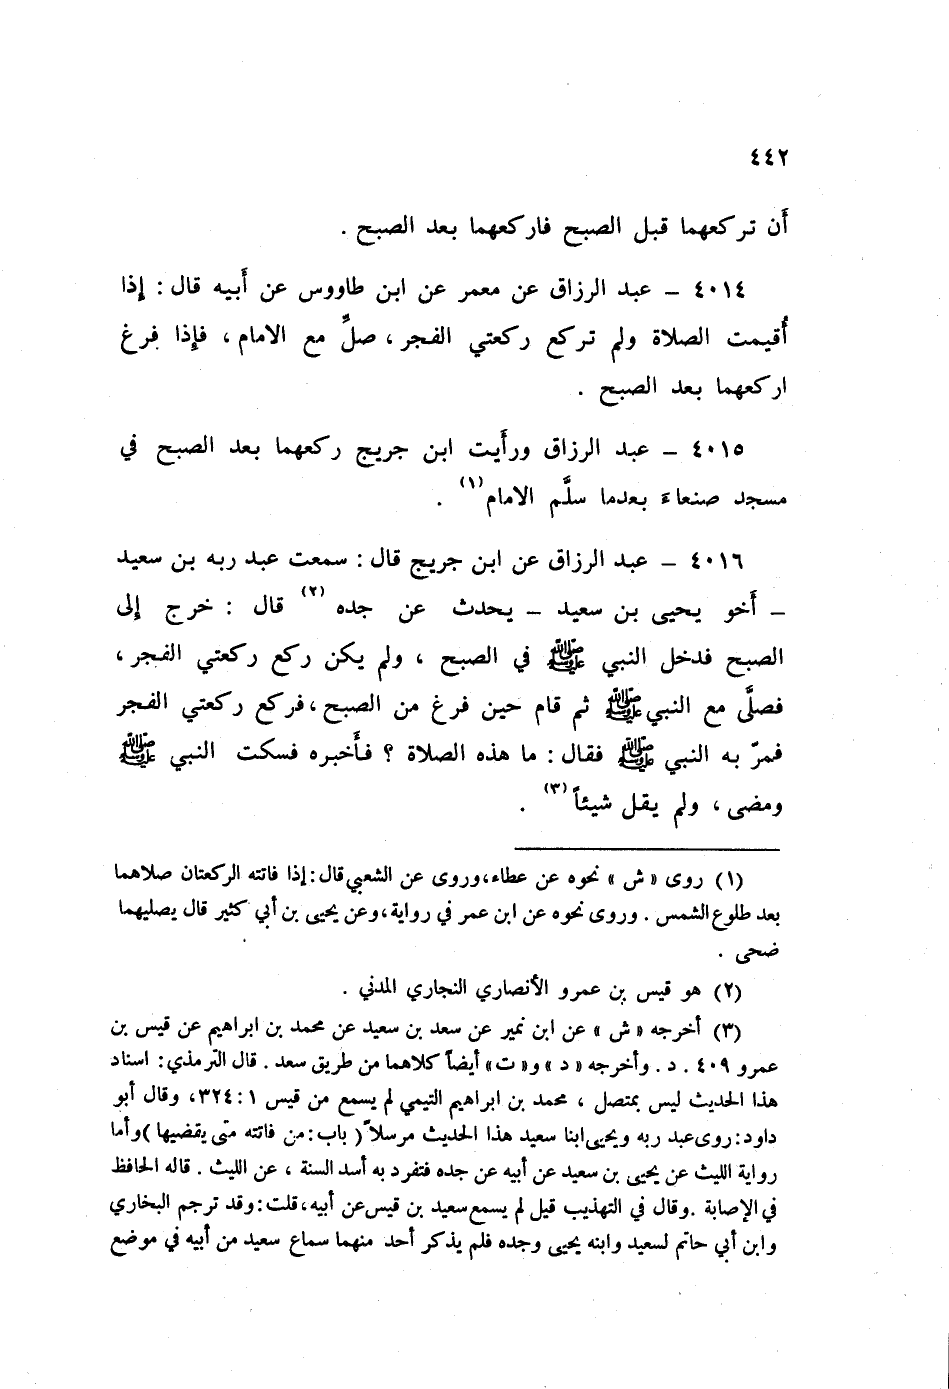 ٤٤٢
أَن تركعهما قبل الصبح فاركعهما بعد الصبح .
٤٠١٤ ـ عبد الرزاق عن معمر عن ابن طاووس عن أَبيه قال : إِذا
أُقيمت الصلاة ولم تركع ركعتي الفجر ، صلِّ مع الامام ، فإِذا فرغ
اركعهما بعد الصبح .
٤٠١٥ ـ عبد الرزاق ورأَيت ابن جريج ركعهما بعد الصبح في
مسجد صنعاءَ بعدما سلَّم الامام (١) .
٤٠١٦ ـ عبد الرزاق عن ابن جريج قال : سمعت عبد ربه بن سعيد
ـ أَخو يحيى بن سعيد ـ يحدث عن جده (٢) قال : خرج إِلى
الصبح فدخل النبي ﷺ في الصبح ، ولم يكن ركع ركعتي الفجر ،
فصلَّى مع النبي ﷺ ثم قام حين فرغ من الصبح ، فركع ركعتي الفجر
فمرّ به النبي ﷺ فقال : ما هذه الصلاة ؟ فأَخبره فسكت النبي ﷺ
ومضى ، ولم يقل شيئاً (٣) .
(١) روى « ش » نحوه عن عطاء ، وروى عن الشعبي قال : إذا فاتته الركعتان صلاهما
بعد طلوع الشمس . وروى نحوه عن ابن عمر في رواية ، وعن يحيى بن أبي كثير قال يصليهما
ضحى .
(٢) هو قيس بن عمرو الأنصاري النجاري المدني .
(٣) أخرجه « ش » عن ابن نمير عن سعد بن سعيد عن محمد بن ابراهيم عن قيس بن
عمرو ٤٠٩ . د . وأخرجه « د » و« ت » أيضاً كلاهما من طريق سعد . قال الترمذي : اسناد
هذا الحديث ليس بمتصل ، محمد بن ابراهيم التيمي لم يسمع من قيس ١ : ٣٢٤ ، وقال أبو
داود : روى عبد ربه ويحيى ابنا سعيد هذا الحديث مرسلاً ( باب : من فاتته متى يقضيها ) وأما
رواية الليث عن يحيى بن سعيد عن أبيه عن جده فتفرد به أسد السنة ، عن الليث . قاله الحافظ
في الإصابة . وقال في التهذيب قيل لم يسمع سعيد بن قيس عن أبيه ، قلت : وقد ترجم البخاري
وابن أبي حاتم لسعيد وابنه يحيى وجده فلم يذكر أحد منهما سماع سعيد من أبيه في موضع